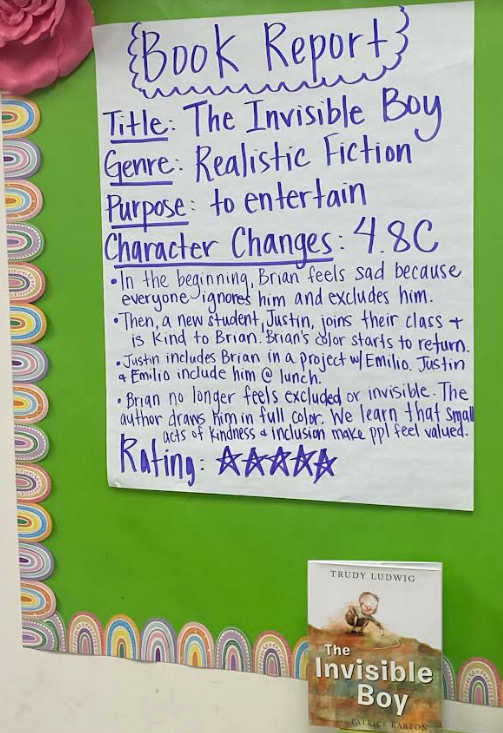 Book Report
Title: The Invisible Boy
Genre: Realistic Fiction
Purpose: to entertain
Character Changes: 4.8C
• In the beginning, Brian feels sad because
everyone ignores him and excludes him.
• Then, a new student, Justin, joins their class +
is kind to Brian. Brian's color starts to return.
• Justin includes Brian in a project w/ Emilio. Justin
+ Emilio include him @ lunch.
• Brian no longer feels excluded or invisible. The
author draws him in full color. We learn that small
acts of kindness + inclusion make ppl feel valued.
Rating: ☆☆☆☆☆
TRUDY LUDWIG
The
Invisible
Boy
PATRICE BARTON